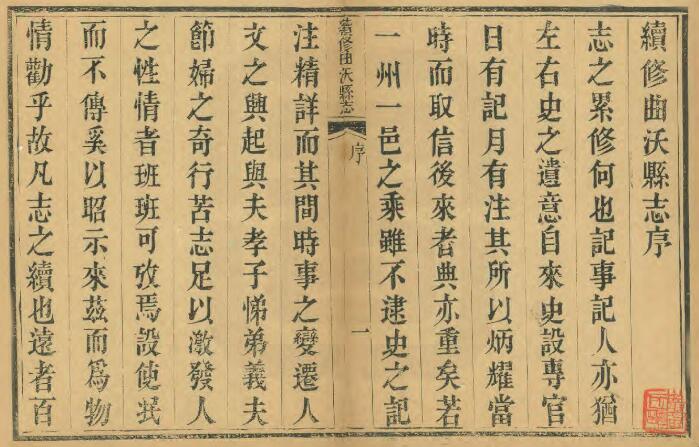 續修曲沃縣志序
志之累修何也記事記人亦猶
左右史之遺意自來史設專官
日有記月有注其所以炳耀當
時而取信後來者典亦重矣若
一州一邑之乘雖不逮史之記
續修曲沃縣志
序
一
注精詳而其間時事之變遷人
文之興起與夫孝子悌弟義夫
節婦之奇行苦志足以激發人
之性情者班班可攷焉設使泯
而不傳奚以昭示來茲而爲物
情勸乎故凡志之續也遠者百